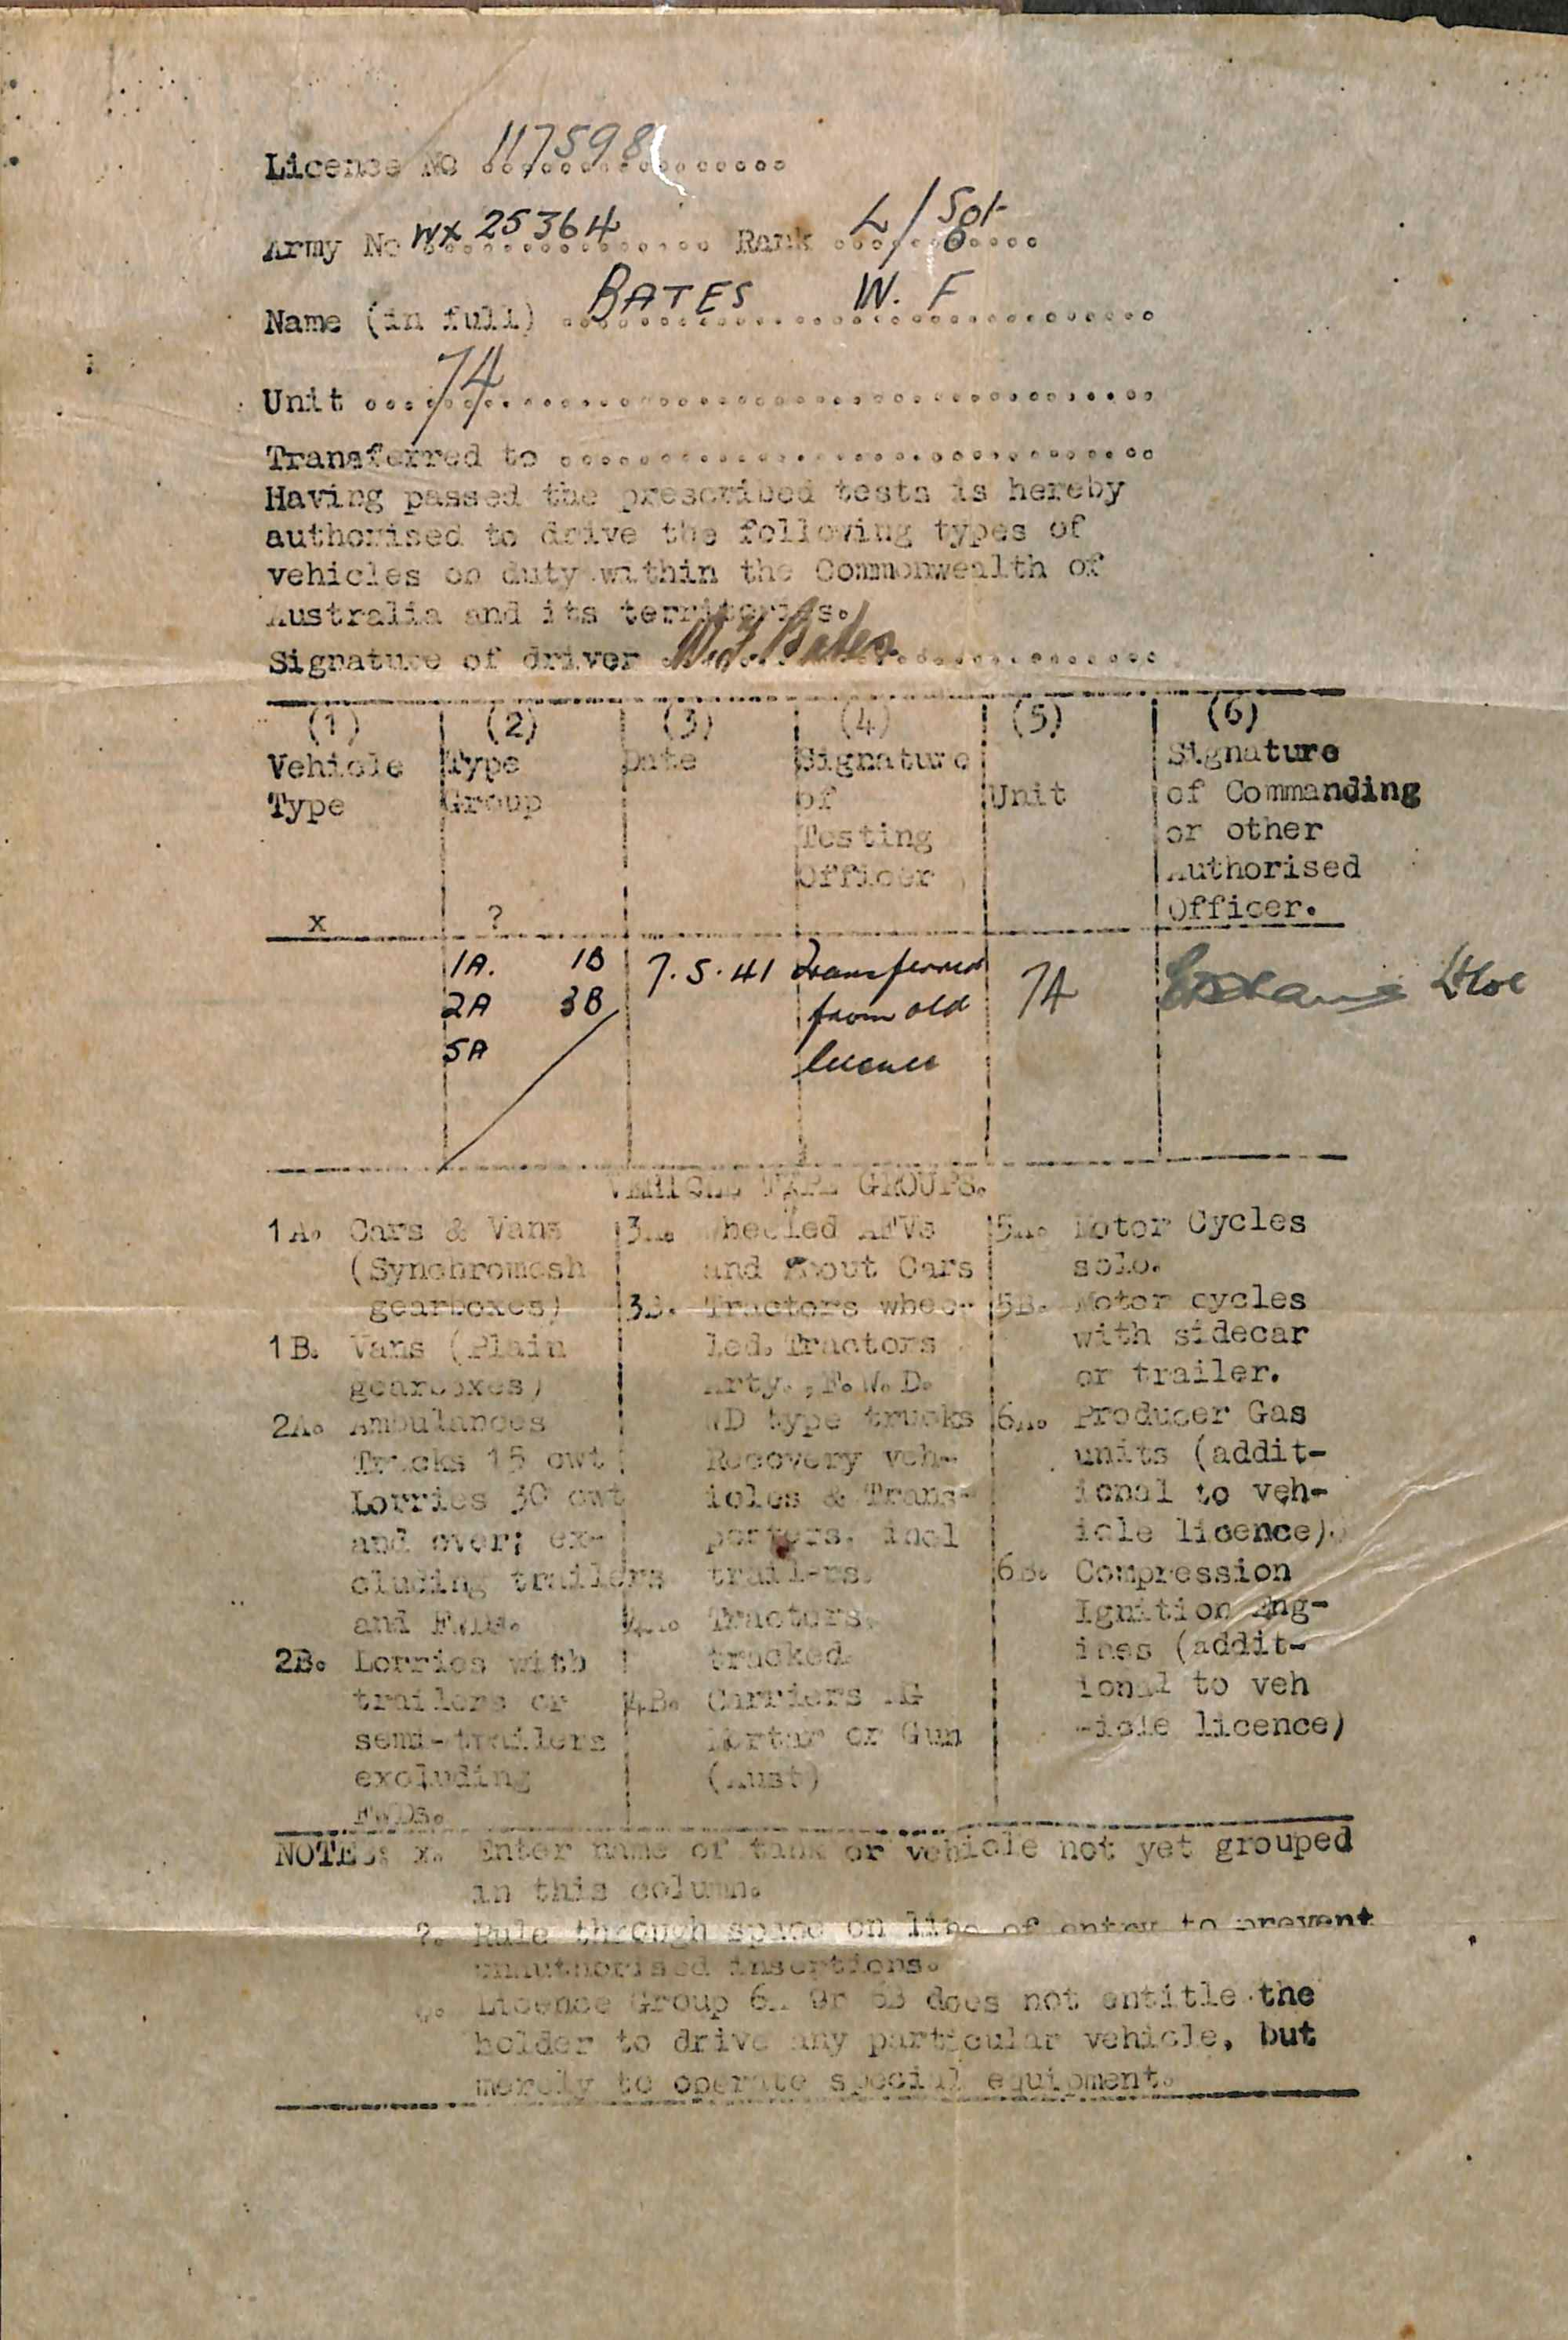 Licence No 117598
Army No WX 25364 Rank L/Sgt
Name (in full) BATES W. F
Unit 74
Transferred to
Having passed the prescribed tests is hereby
authorised to drive the following types of
vehicles on duty within the Commonwealth of
Australia and its territories.
Signature of driver W.F. Bates
(1) (2) (3) (4) (5) (6)
Vehicle Type Date Signature Unit Signature
Type Group of of Commanding
Testing or other
Officer Authorised
x ? Officer.
1A. 1B 7.5.41 Transferred 74
2A 3B from old
5A licence
VEHICLE TYPE GROUPS.
1A. Cars & Vans
(Synchromesh
gearboxes)
1B. Vans (Plain
gearboxes)
2A. Ambulances
Trucks 15 cwt
Lorries 30 cwt
and over; ex-
cluding trailers
and FWDs.
2B. Lorries with
trailers or
semi-trailers
excluding
FWDs.
3A. Wheeled AFVs
and Scout Cars
3B. Tractors whee-
led. Tractors
Arty., F.W.D.
WD type trucks
Recovery veh-
icles & Trans-
porters, incl
trailers.
4A. Tractors,
tracked.
4B. Carriers MG
Mortar or Gun
(Aust)
5A. Motor Cycles
solo.
5B. Motor cycles
with sidecar
or trailer.
6A. Producer Gas
units (addit-
ional to veh-
icle licence).
6B. Compression
Ignition Eng-
ines (addit-
ional to veh
-icle licence)
NOTES: x. Enter name of tank or vehicle not yet grouped
in this column.
?. Rule through space on line of entry to prevent
unauthorised insertions.
Licence Group 6A or 6B does not entitle the
holder to drive any particular vehicle, but
merely to operate special equipment.